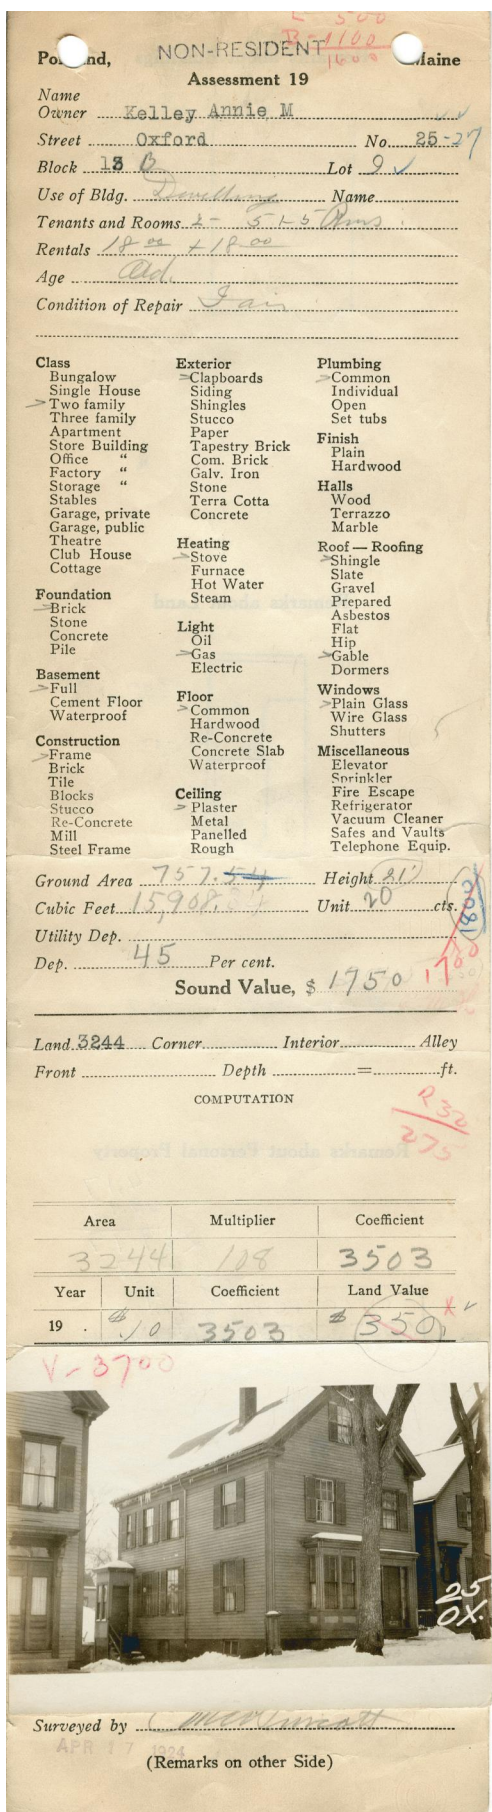 L- 500
B-1100
1600
NON-RESIDENT
Portland, Maine
Assessment 19
Name
Owner Kelley Annie M
Street Oxford No. 25-27
Block 13 B Lot 9
Use of Bldg. Dwelling Name
Tenants and Rooms 2- 5 1-5 Rms
Rentals 18 00 + 18 00
Age Old
Condition of Repair Fair
Class
Bungalow
Single House
Two family
Three family
Apartment
Store Building
Office "
Factory "
Storage "
Stables
Garage, private
Garage, public
Theatre
Club House
Cottage
Foundation
Brick
Stone
Concrete
Pile
Basement
Full
Cement Floor
Waterproof
Construction
Frame
Brick
Tile
Blocks
Stucco
Re-Concrete
Mill
Steel Frame
Exterior
Clapboards
Siding
Shingles
Stucco
Paper
Tapestry Brick
Com. Brick
Galv. Iron
Stone
Terra Cotta
Concrete
Heating
Stove
Furnace
Hot Water
Steam
Light
Oil
Gas
Electric
Floor
Common
Hardwood
Re-Concrete
Concrete Slab
Waterproof
Ceiling
Plaster
Metal
Panelled
Rough
Plumbing
Common
Individual
Open
Set tubs
Finish
Plain
Hardwood
Halls
Wood
Terrazzo
Marble
Roof — Roofing
Shingle
Slate
Gravel
Prepared
Asbestos
Flat
Hip
Gable
Dormers
Windows
Plain Glass
Wire Glass
Shutters
Miscellaneous
Elevator
Sprinkler
Fire Escape
Refrigerator
Vacuum Cleaner
Safes and Vaults
Telephone Equip.
Ground Area 757.54 Height 21'
Cubic Feet 15,908. Unit 20 cts.
1800
Utility Dep.
Dep. 45 Per cent.
Sound Value, $ 1750 1700
Land 3244 Corner Interior Alley
Front Depth = ft.
COMPUTATION
R32
275
Area Multiplier Coefficient
3244 108 3503
Year Unit Coefficient Land Value
19 . $.10 3503 $ 350
V-3700
25
OX.
Surveyed by
APR 17 1924
(Remarks on other Side)